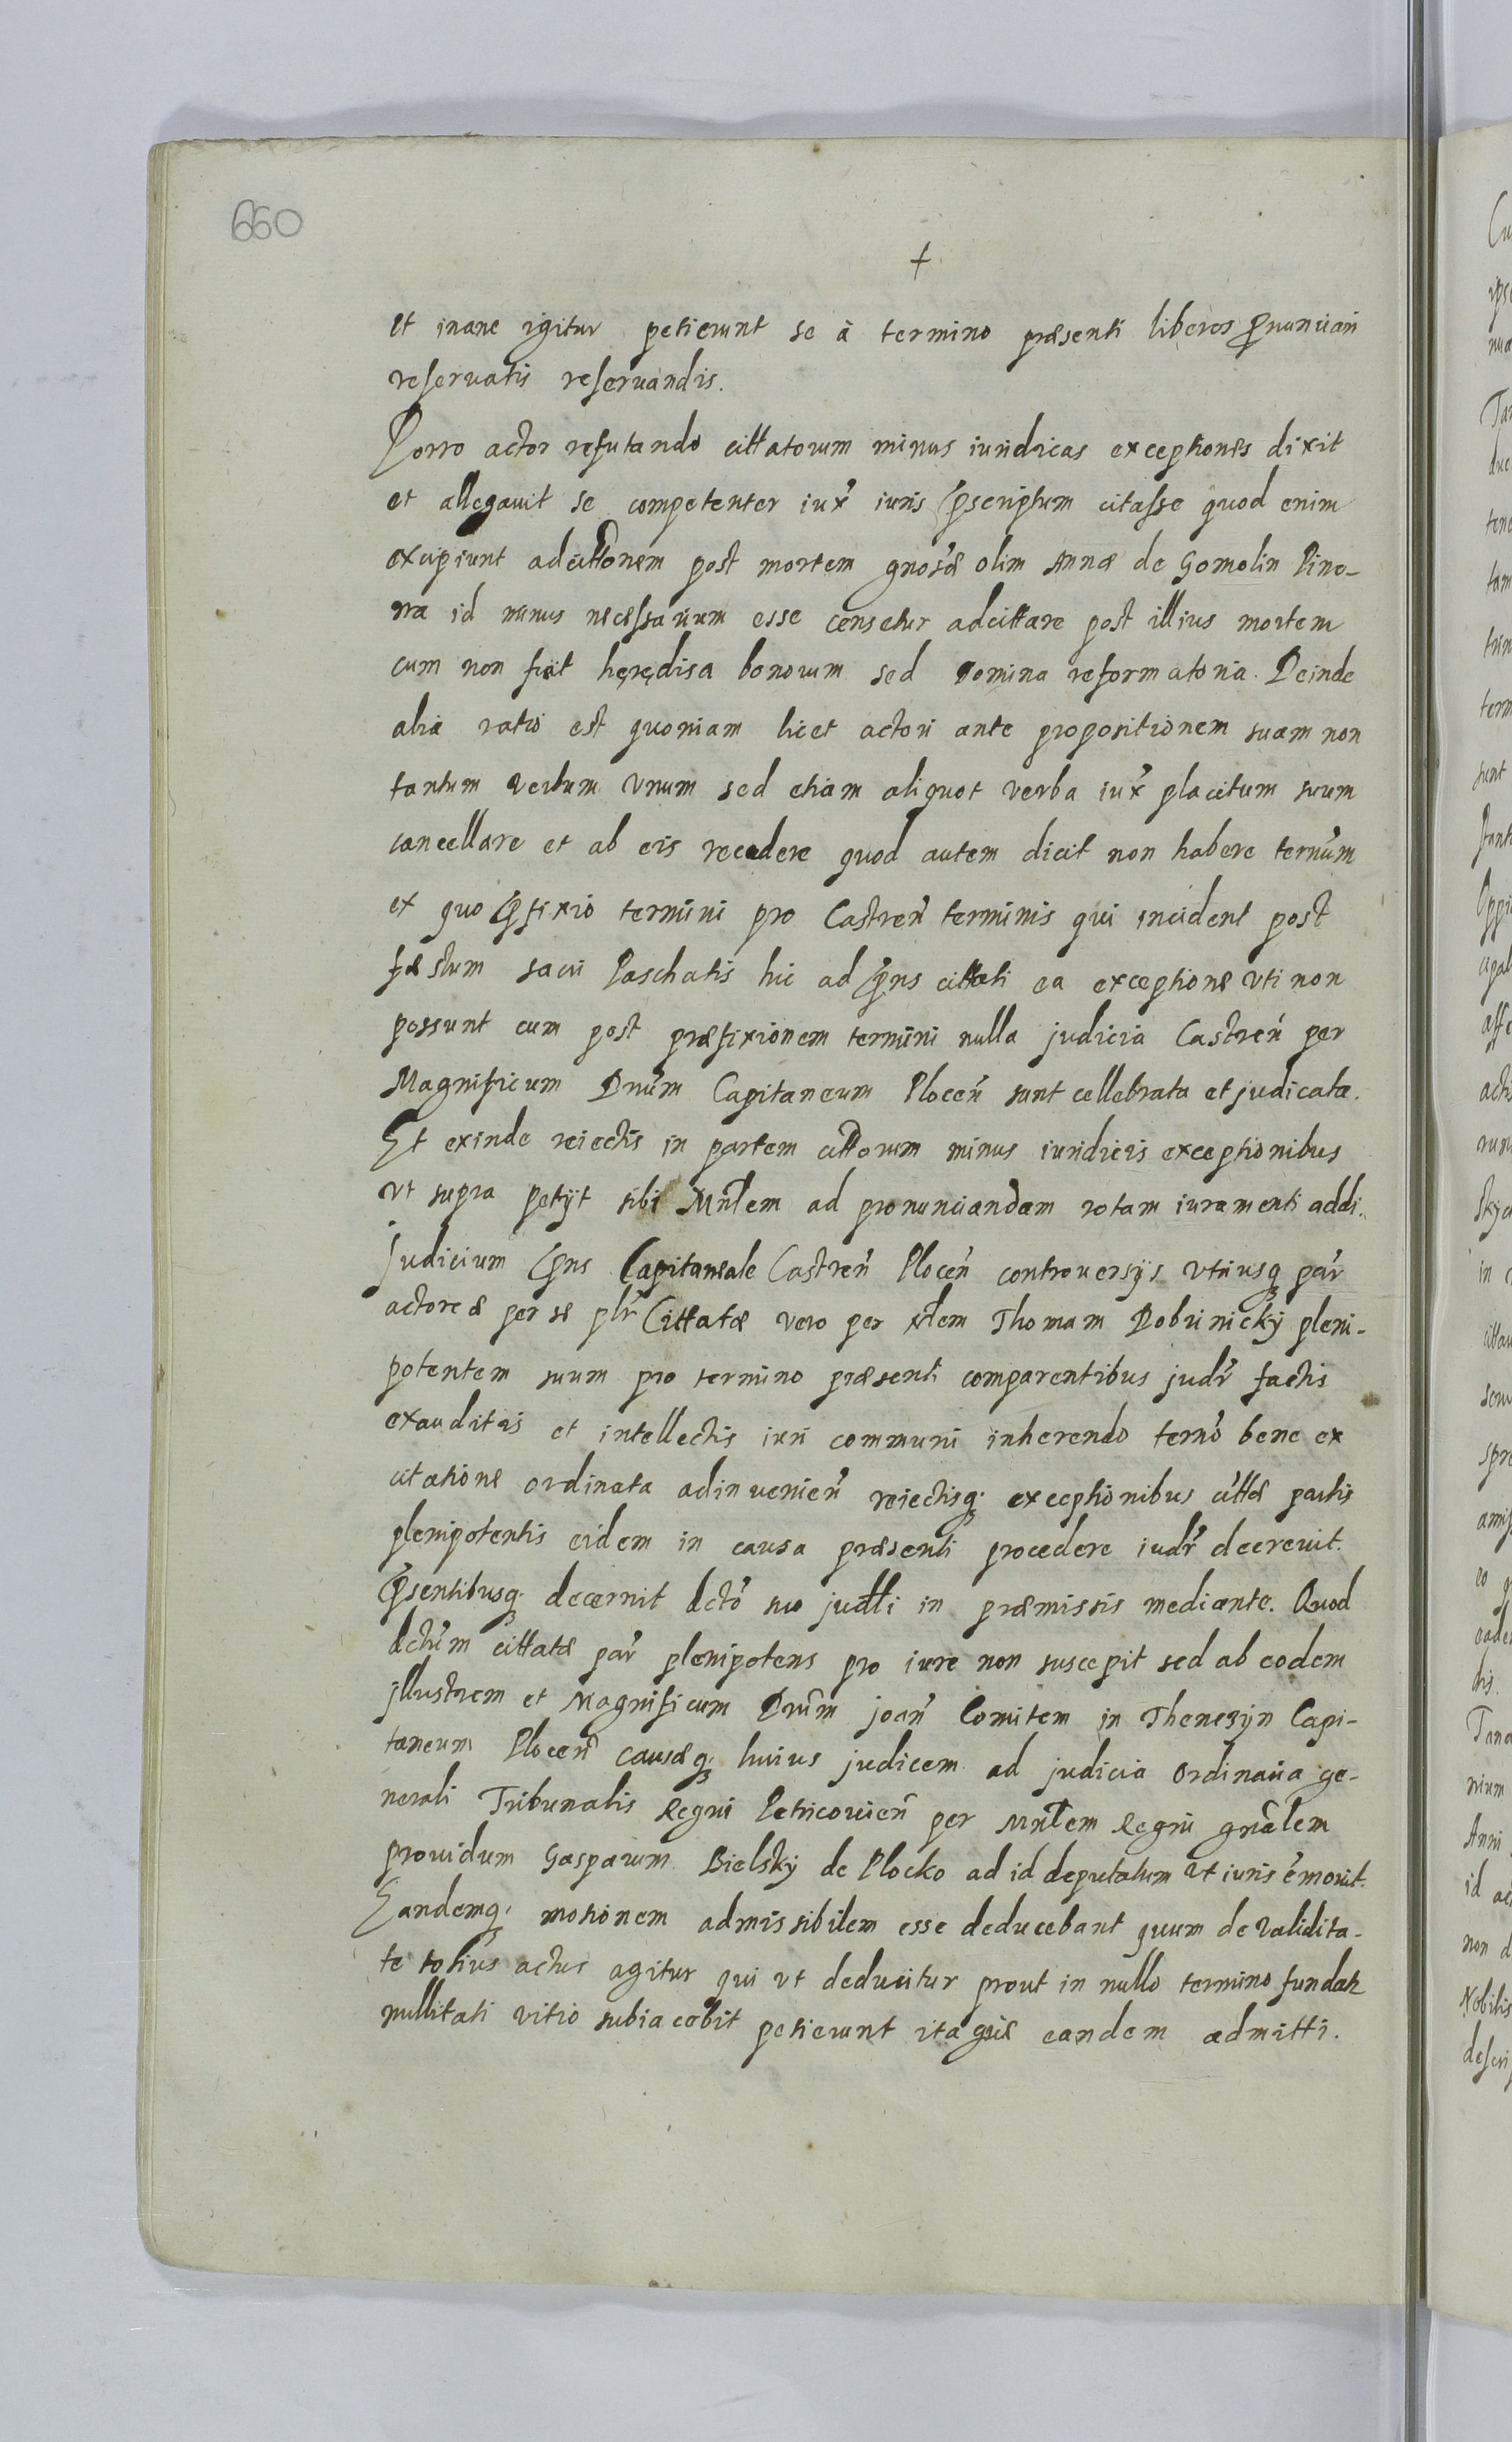 660
+
et inane igitur petierunt se à termino præsenti liberos pronunciari
reservatis reservandis.
Porro actor refutando cittatorum minus iuridicas exceptiones dixit
et allegavit se competenter iux̃ iuris p̃scriptum citasse quod enim
excipiunt adcittõnem post mortem gnosæ olim Annæ de Gomolin Pino-
ra id minus necessarium esse censetur adcittare post illius mortem
cum non fuit hęrędisa bonorum sed domina reformatoria. Deinde
alia ratio est quoniam licet actori ante propositionem suam non
tantum verbum vnum sed etiam aliquot verba iux̃ placitum suum
cancellare et ab eis recedere quod autem dicit non habere ternũm
ex quo p̃fixio termini pro Castreñ terminis qui incident post
fæstum sacri Paschatis hic ad p̃ns cittati ea exceptione vti non
possunt cum post præfixionem termini nulla judicia Castreñ per
Magnificum Dnũm CapitaneumPloceñ sunt cellebrata et judicata.
Et exinde reiectis in partem cittorum minus iuridicis exceptionibus
vt supra petyt sibi Mnr̃lem ad pronunciandam rotam iuramenti addi.
Judicium p̃ns Capitaneale Castreñ Ploceñ controversys vtriusq; par̃
actoreæ per se plr̃ Cittatæ vero per Thomam Dobrinicky pleni-
potentem suum pro termino præsenti comparentibus judr̃ factis
exauditis et intellectis iuri communi inherendo ternõ bene ex
citatione ordinata adinvenieñ reiectisq; exceptionibus cittæ partis
plenipotentis eidem in causa præsenti procedere iudr̃ decrevit.
p̃sentibusq; decernit dctõ suo judlĩ in præmissis mediante. Quod
dctũm cittatæ par̃ plenipotens pro iure non suscepit sed ab eodem
jllustrem et Magnificum Dnũm joañ Comitem in Thenczyn Capi-
taneum Ploceñ causæq; huius judicem ad judicia ordinaria ge-
nerali Tribunalis Regni Petricovieñ per Mnr̃lem Regni gnãlem
providum Gasparum Bielsky de Plocko ad id deputatum vt iuris ẽ movit.
Eandemq; motionem admissibilem esse deducebant quum de validita-
te totius actus agitur qui vt deducitur prout in nullo termino fundatz
nullitati vitio subiacebit petierunt itaque eandem admitti.